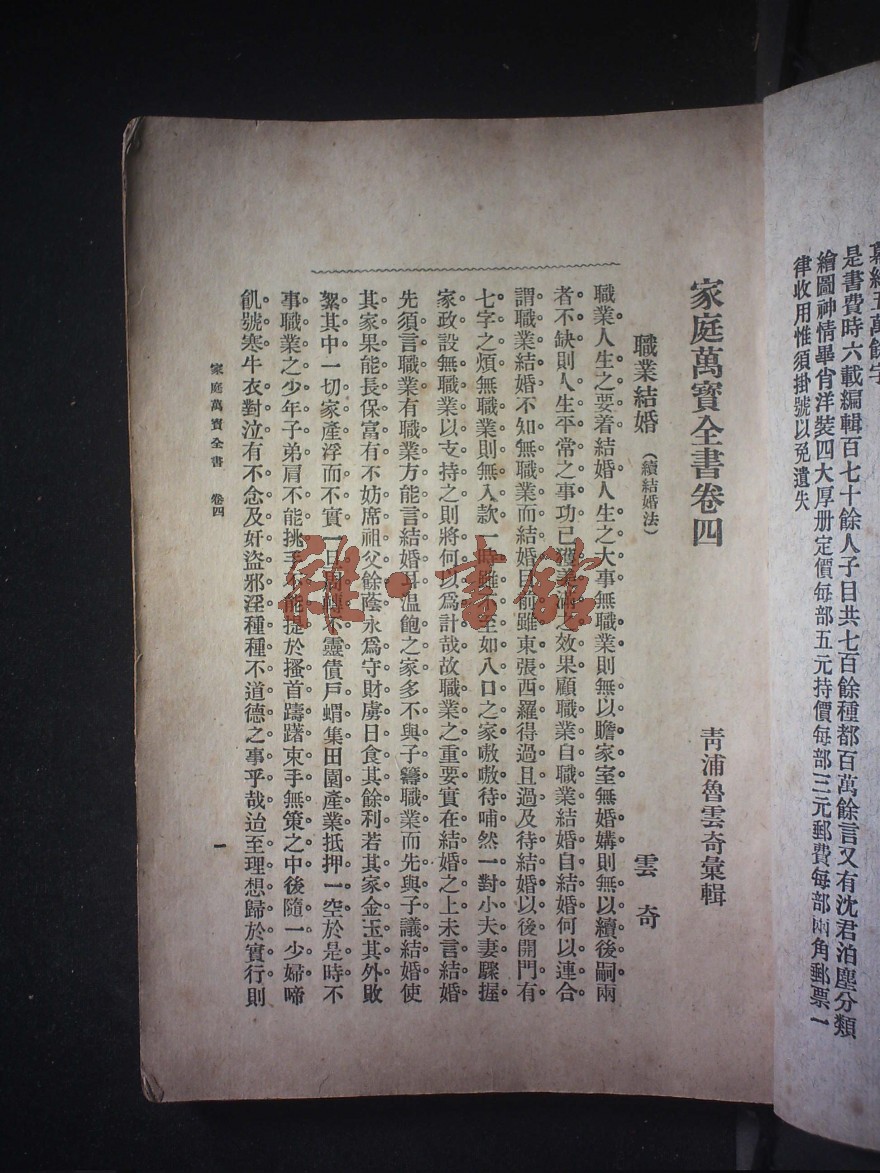 是書費時六載編輯百七十餘人子目共七百餘種都百萬餘言又有沈君泊塵分類
繪圖神情畢肖洋裝四大厚册定價每部五元特價每部三元郵費每部兩角郵票一
律收用惟須掛號以免遺失
家庭萬寶全書卷四
青浦魯雲奇彙輯
職業結婚(續結婚法)
雲奇
職業人生之要着結婚人生之大事無職業則無以贍家室無婚媾則無以續後嗣兩
者不缺則人生平常之事功已獲美滿之效果顧職業自職業結婚自結婚何以連合
謂職業結婚不知無職業而結婚目前雖東張西羅得過且過及待結婚以後開門有
七字之煩無職業則無入款一時雖不至如八口之家嗷嗷待哺然一對小夫妻驟握
家政設無職業以支持之則將何以爲計哉故職業之重要實在結婚之上未言結婚
先須言職業有職業方能言結婚耳溫飽之家多不與子籌職業而先與子議結婚使
其家果能長保富有不妨席祖父餘蔭永爲守財虜日食其餘利若其家金玉其外敗
絮其中一切家產浮而不實一旦周轉不靈債戶蝟集田園產業抵押一空於是時不
事職業之少年子弟肩不能挑手不能提於搔首躊躇束手無策之中後隨一少婦啼
飢號寒牛衣對泣有不念及奸盜邪淫種種不道德之事乎哉迨至理想歸於實行則
家庭萬寶全書 卷四
一
雜·書館